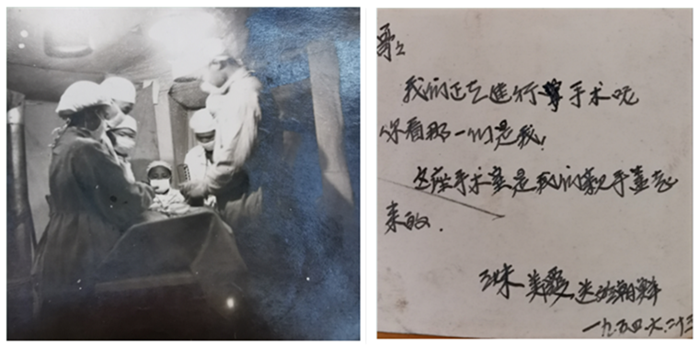 哥：
我们正在进行着手术呢
你看那一个是我！
这座手术室是我们亲手盖起
来的.
美 于朝鲜
一九五四.六.二十三